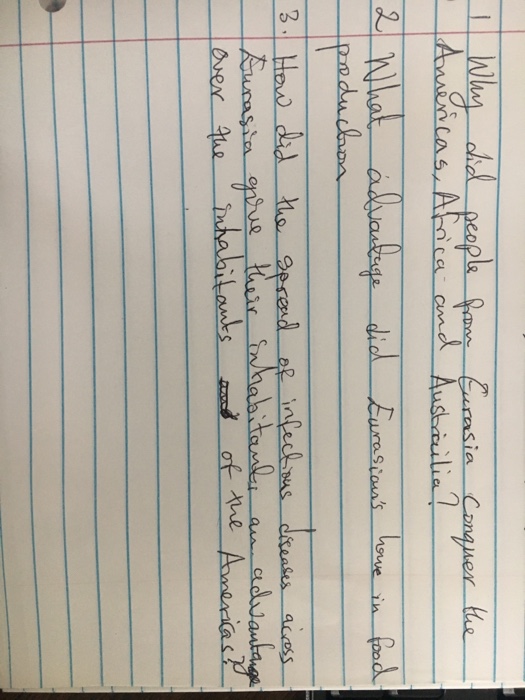 1 Why did people from Eurasia conquer the
Americas, Africa and Austrailia?
2 What advantage did Eurasian's have in food
production
3. How did the spread of infectious diseases across
Eurasia give their inhabitants an advantage
over the inhabitants of the Americas?